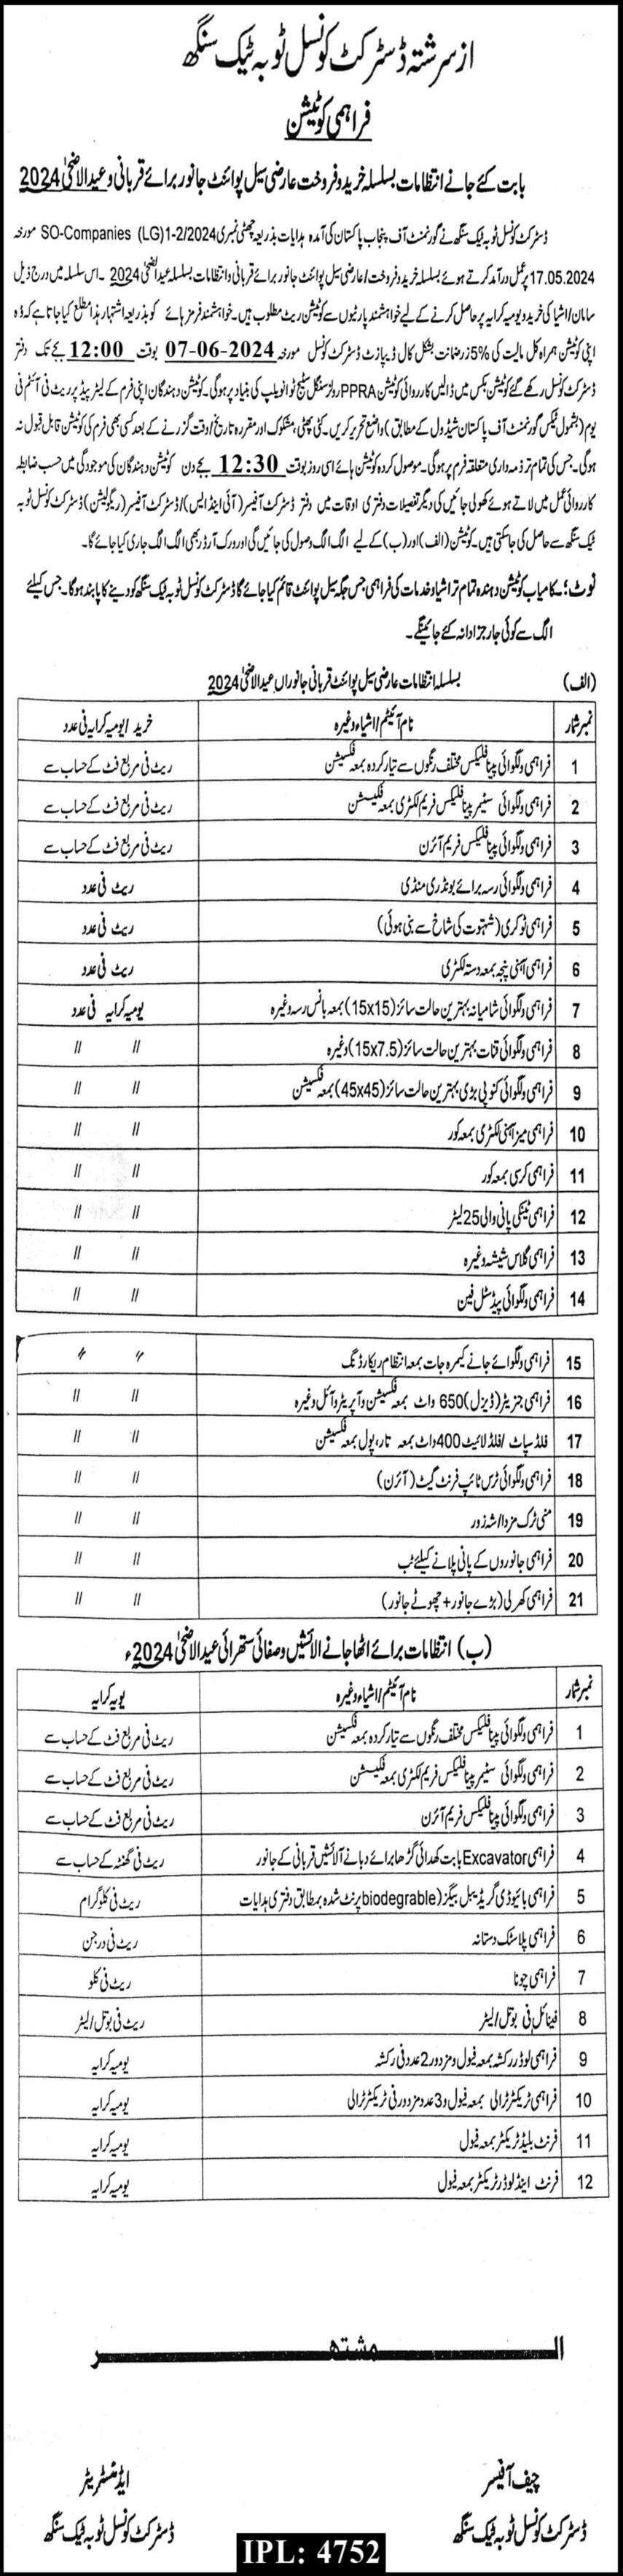 از سرشتہ ڈسٹرکٹ کونسل ٹوبہ ٹیک سنگھ
فراہمی کوٹیشن
بابت کئے جانے انتظامات بسلسلہ خرید و فروخت عارضی سیل پوائنٹ جانور برائے قربانی و عیدالاضحیٰ 2024
ڈسٹرکٹ کونسل ٹوبہ ٹیک سنگھ نے گورنمنٹ آف پنجاب پاکستان کی آمدہ ہدایات بذریعہ چٹھی نمبری SO-Companies (LG)1-2/2024 مورخہ
17.05.2024 پر عمل درآمد کرتے ہوئے بسلسلہ خرید و فروخت/عارضی سیل پوائنٹ جانور برائے قربانی و انتظامات بسلسلہ عیدالضحیٰ 2024۔ اس سلسلہ میں درج ذیل
سامان/اشیا کی خرید و یومیہ کرایہ پر حاصل کرنے کے لیے خواہشمند پارٹیوں سے کوٹیشن ریٹ مطلوب ہیں۔ خواہشمند فرمز ہائے کو بذریعہ اشتہار ہذا مطلع کیا جاتا ہے کہ وہ
اپنی کوٹیشن ہمراہ کل مالیت کی 5% زرضانت بشکل کال ڈیپازٹ ڈسٹرکٹ کونسل مورخہ 07-06-2024 بوقت 12:00 بجے تک دفتر
ڈسٹرکٹ کونسل رکھے گئے کوٹیشن بکس میں ڈالیں کارروائی کوٹیشن PPRA رولز سنگل سٹیج ٹو انویلپ کی بنیاد پر ہوگی۔ کوٹیشن دہندگان اپنی فرم کے لیٹر پیڈ پر ریٹ فی آئٹم فی
یوم (بشمول ٹیکس گورنمنٹ آف پاکستان شیڈول کے مطابق) واضع تحریر کریں۔ کٹی پھٹی، مشکوک اور مقررہ تاریخ/وقت گزرنے کے بعد کسی بھی فرم کی کوٹیشن قابل قبول نہ
ہوگی۔ جس کی تمام تر ذمہ داری متعلقہ فرم پر ہوگی۔ موصول کردہ کوٹیشن ہائے اسی روز بوقت 12:30 بجے دن کوٹیشن دہندگان کی موجودگی میں حسب ضابطہ
کارروائی عمل میں لاتے ہوئے کھولی جائیں کی دیگر تفصیلات دفتری اوقات میں دفتر ڈسٹرکٹ آفیسر (آئی اینڈ ایس)/ڈسٹرکٹ آفیسر (ریگولیشن) ڈسٹرکٹ کونسل ٹوبہ
ٹیک سنگھ سے حاصل کی جاسکتی ہیں۔ کوٹیشن (الف) اور (ب) کے لیے الگ الگ وصول کی جائیں گی اور ورک آرڈر بھی الگ الگ جاری کیا جائے گا۔
نوٹ:۔ کامیاب کوٹیشن دہندہ تمام تر اشیا و خدمات کی فراہمی جس جگہ سیل پوائنٹ قائم کیا جائے گا ڈسٹرکٹ کونسل ٹوبہ ٹیک سنگھ کو دینے کا پابند ہوگا۔ جس کیلئے
الگ سے کوئی چارجز ادا نہ کئے جائینگے۔
(الف) بسلسلہ انتظامات عارضی سیل پوائنٹ قربانی جانوراں عیدالاضحیٰ 2024
نمبر شمار نام آئیٹم/اشیاء وغیرہ خرید/یومیہ کرایہ فی عدد
1 فراہمی ولگوائی پینا فلیکس مختلف رنگوں سے تیار کردہ بمعہ فکسیشن ریٹ فی مربع فٹ کے حساب سے
2 فراہمی ولگوائی سٹیمر پینا فلیکس فریم لکڑی بمعہ فکسیشن ریٹ فی مربع فٹ کے حساب سے
3 فراہمی ولگوائی پینا فلیکس فریم آئرن ریٹ فی مربع فٹ کے حساب سے
4 فراہمی ولگوائی رسہ برائے بونڈری منڈی ریٹ فی عدد
5 فراہمی ٹوکری (شہتوت کی شاخ سے بنی ہوئی) ریٹ فی عدد
6 فراہمی آہنی پنجہ بمعہ دستہ لکڑی ریٹ فی عدد
7 فراہمی ولگوائی شامیانہ بہترین حالت سائز (15x15) بمعہ بانس رسہ وغیرہ یومیہ کرایہ فی عدد
8 فراہمی ولگوائی قنات بہترین حالت سائز (15x7.5) وغیرہ // //
9 فراہمی ولگوائی کنوپی بڑی بہترین حالت سائز (45x45) بمعہ فکسیشن // //
10 فراہمی میز آہنی لکڑی بمعہ کور // //
11 فراہمی کرسی بمعہ کور // //
12 فراہمی ٹینکی پانی والی 25 لیٹر // //
13 فراہمی گلاس شیشہ وغیرہ // //
14 فراہمی ولگوائی پیڈسٹل فین // //
15 فراہمی ولگوائے جانے کیمرہ جات بمعہ انتظام ریکارڈنگ // //
16 فراہمی جنریٹر (ڈیزل) 650 واٹ بمعہ فکسیشن و آپریٹر و آئل وغیرہ // //
17 فلڈ سپاٹ/فلڈ لائیٹ 400 واٹ بمعہ تار، پول بمعہ فکسیشن // //
18 فراہمی ولگوائی ٹرس ٹائپ فرنٹ گیٹ (آئرن) // //
19 منی ٹرک مزدا/شہ زور // //
20 فراہمی جانوروں کے پانی پلانے کیلئے ٹب // //
21 فراہمی کھرلی (بڑے جانور + چھوٹے جانور) // //
(ب) انتظامات برائے اٹھا جانے الائشیں و صفائی ستھرائی عیدالاضحیٰ 2024ء
نمبر شمار نام آئیٹم/اشیاء وغیرہ یومیہ کرایہ
1 فراہمی ولگوائی پینا فلیکس مختلف رنگوں سے تیار کردہ بمعہ فکسیشن ریٹ فی مربع فٹ کے حساب سے
2 فراہمی ولگوائی سٹیمر پینا فلیکس فریم لکڑی بمعہ فکسیشن ریٹ فی مربع فٹ کے حساب سے
3 فراہمی ولگوائی پینا فلیکس فریم آئرن ریٹ فی مربع فٹ کے حساب سے
4 فراہمی Excavator بابت کھدائی گڑھا برائے دبانے آلائشیں قربانی کے جانور ریٹ فی گھنٹہ کے حساب سے
5 فراہمی بائیوڈی گریڈیبل بیگز (biodegrable) پرنٹ شدہ بمطابق دفتری ہدایات ریٹ فی کلوگرام
6 فراہمی پلاسٹک دستانہ ریٹ فی درجن
7 فراہمی چونا ریٹ فی کلو
8 فینائل فی بوتل/لیٹر ریٹ فی بوتل/لیٹر
9 فراہمی لوڈر رکشہ بمعہ فیول و مزدور 2 عدد فی رکشہ یومیہ کرایہ
10 فراہمی ٹریکٹر ٹرالی بمعہ فیول و 3 عدد مزدور فی ٹریکٹر ٹرالی یومیہ کرایہ
11 فرنٹ بلیڈ ٹریکٹر بمعہ فیول یومیہ کرایہ
12 فرنٹ اینڈ لوڈر ٹریکٹر بمعہ فیول یومیہ کرایہ
المشتھر
چیف آفیسر ایڈمنسٹریٹر
ڈسٹرکٹ کونسل ٹوبہ ٹیک سنگھ ڈسٹرکٹ کونسل ٹوبہ ٹیک سنگھ
IPL: 4752